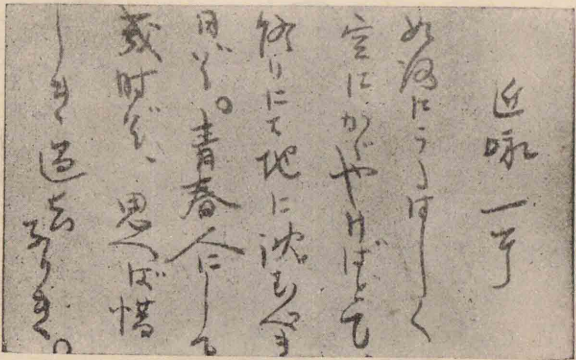 近咏一
如何にうるはしく
空にかゞやけばとて
終りにて地に沈むべき
日ぞ。青春人にして
幾时ぞ、思へば惜
しき過去なりき。